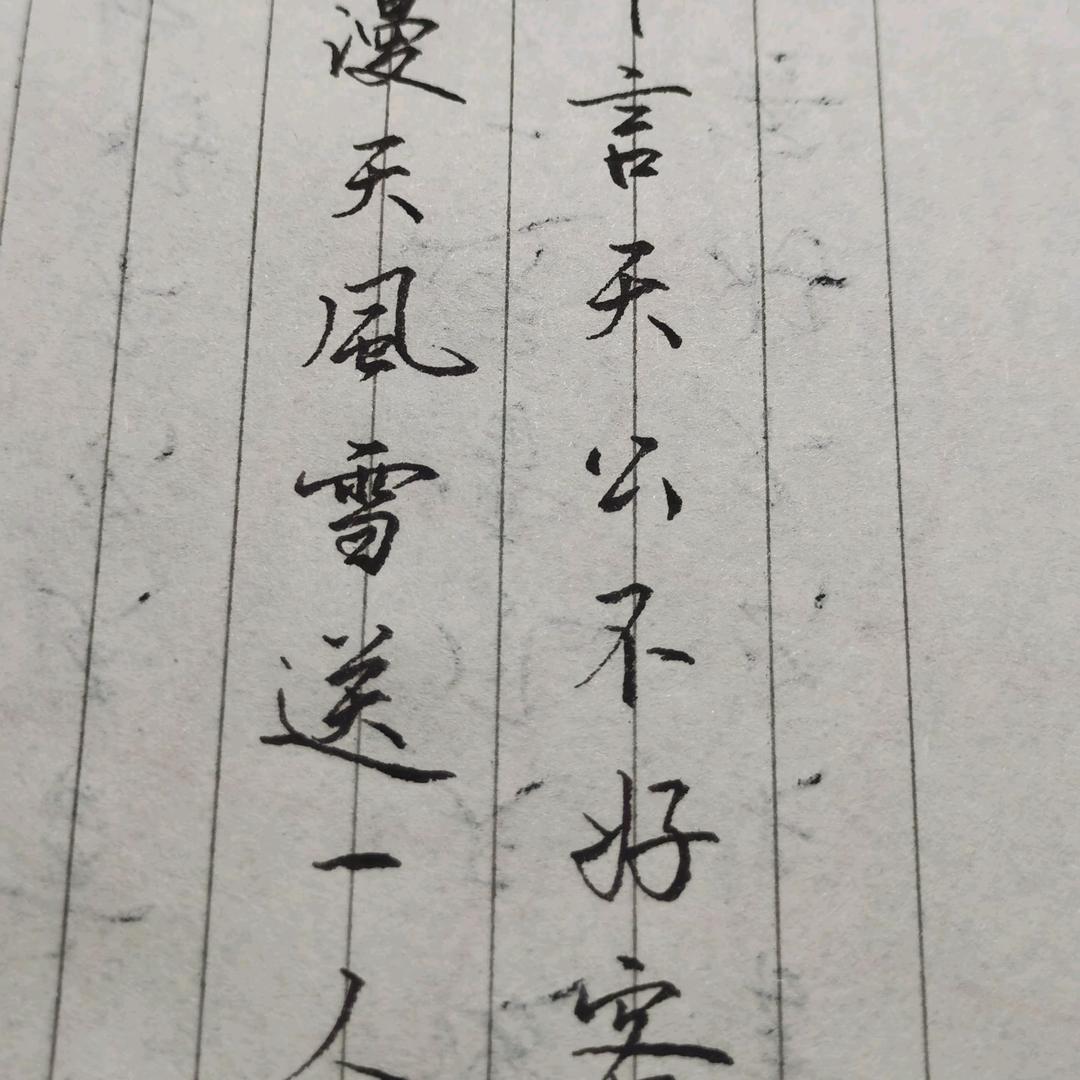 言天公不好客
漫天風雪送一人